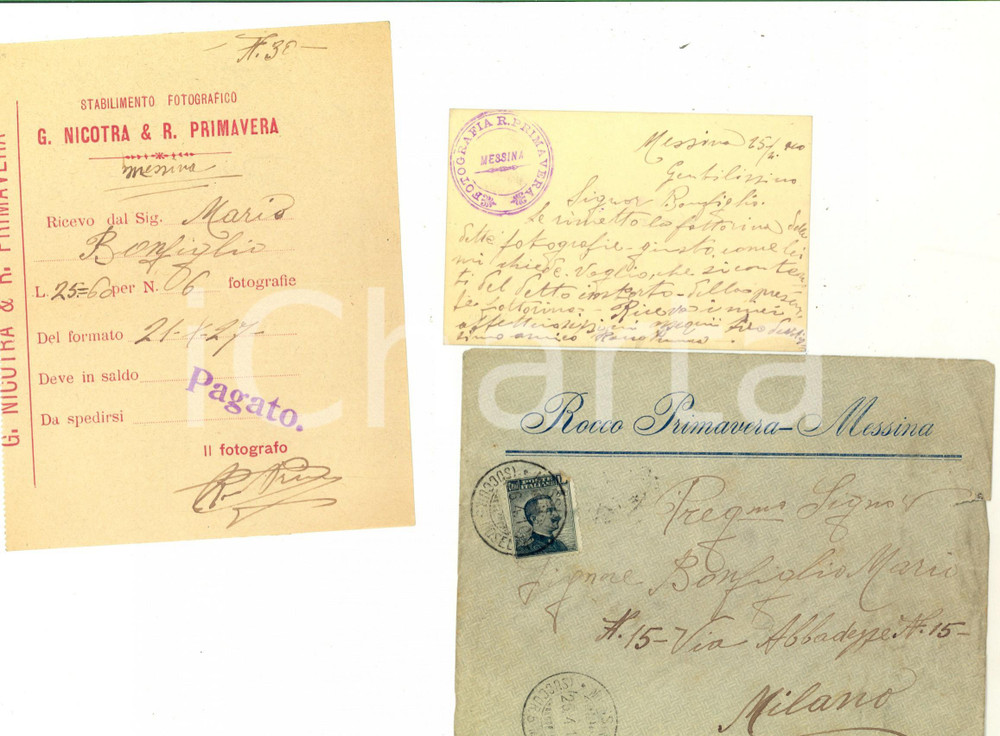 N. 38
STABILIMENTO FOTOGRAFICO
G. NICOTRA & R. PRIMAVERA
Messina
Ricevo dal Sig. Mario
Bonfiglio
L. 25=60 per N. 6 fotografie
Del formato 21-X-27
Deve in saldo
Da spedirsi
Pagato.
Il fotografo
G. NICOTRA & R. PRIMAVERA
FOTOGRAFIA R. PRIMAVERA
MESSINA
Messina 25/4
Gentilissimo
Signor Bonfiglio.
Le rimetto la fattorina delle
dette fotografie - giusto, come lei
mi chiede. Voglio, che si conten-
ti del detto
fattorina. Riceva i miei
amico
Rocco Primavera - Messina
Pregmo Signor
Signore Bonfiglio Mario
N. 15 - Via Abbadesse N. 15 -
Milano
iCharta